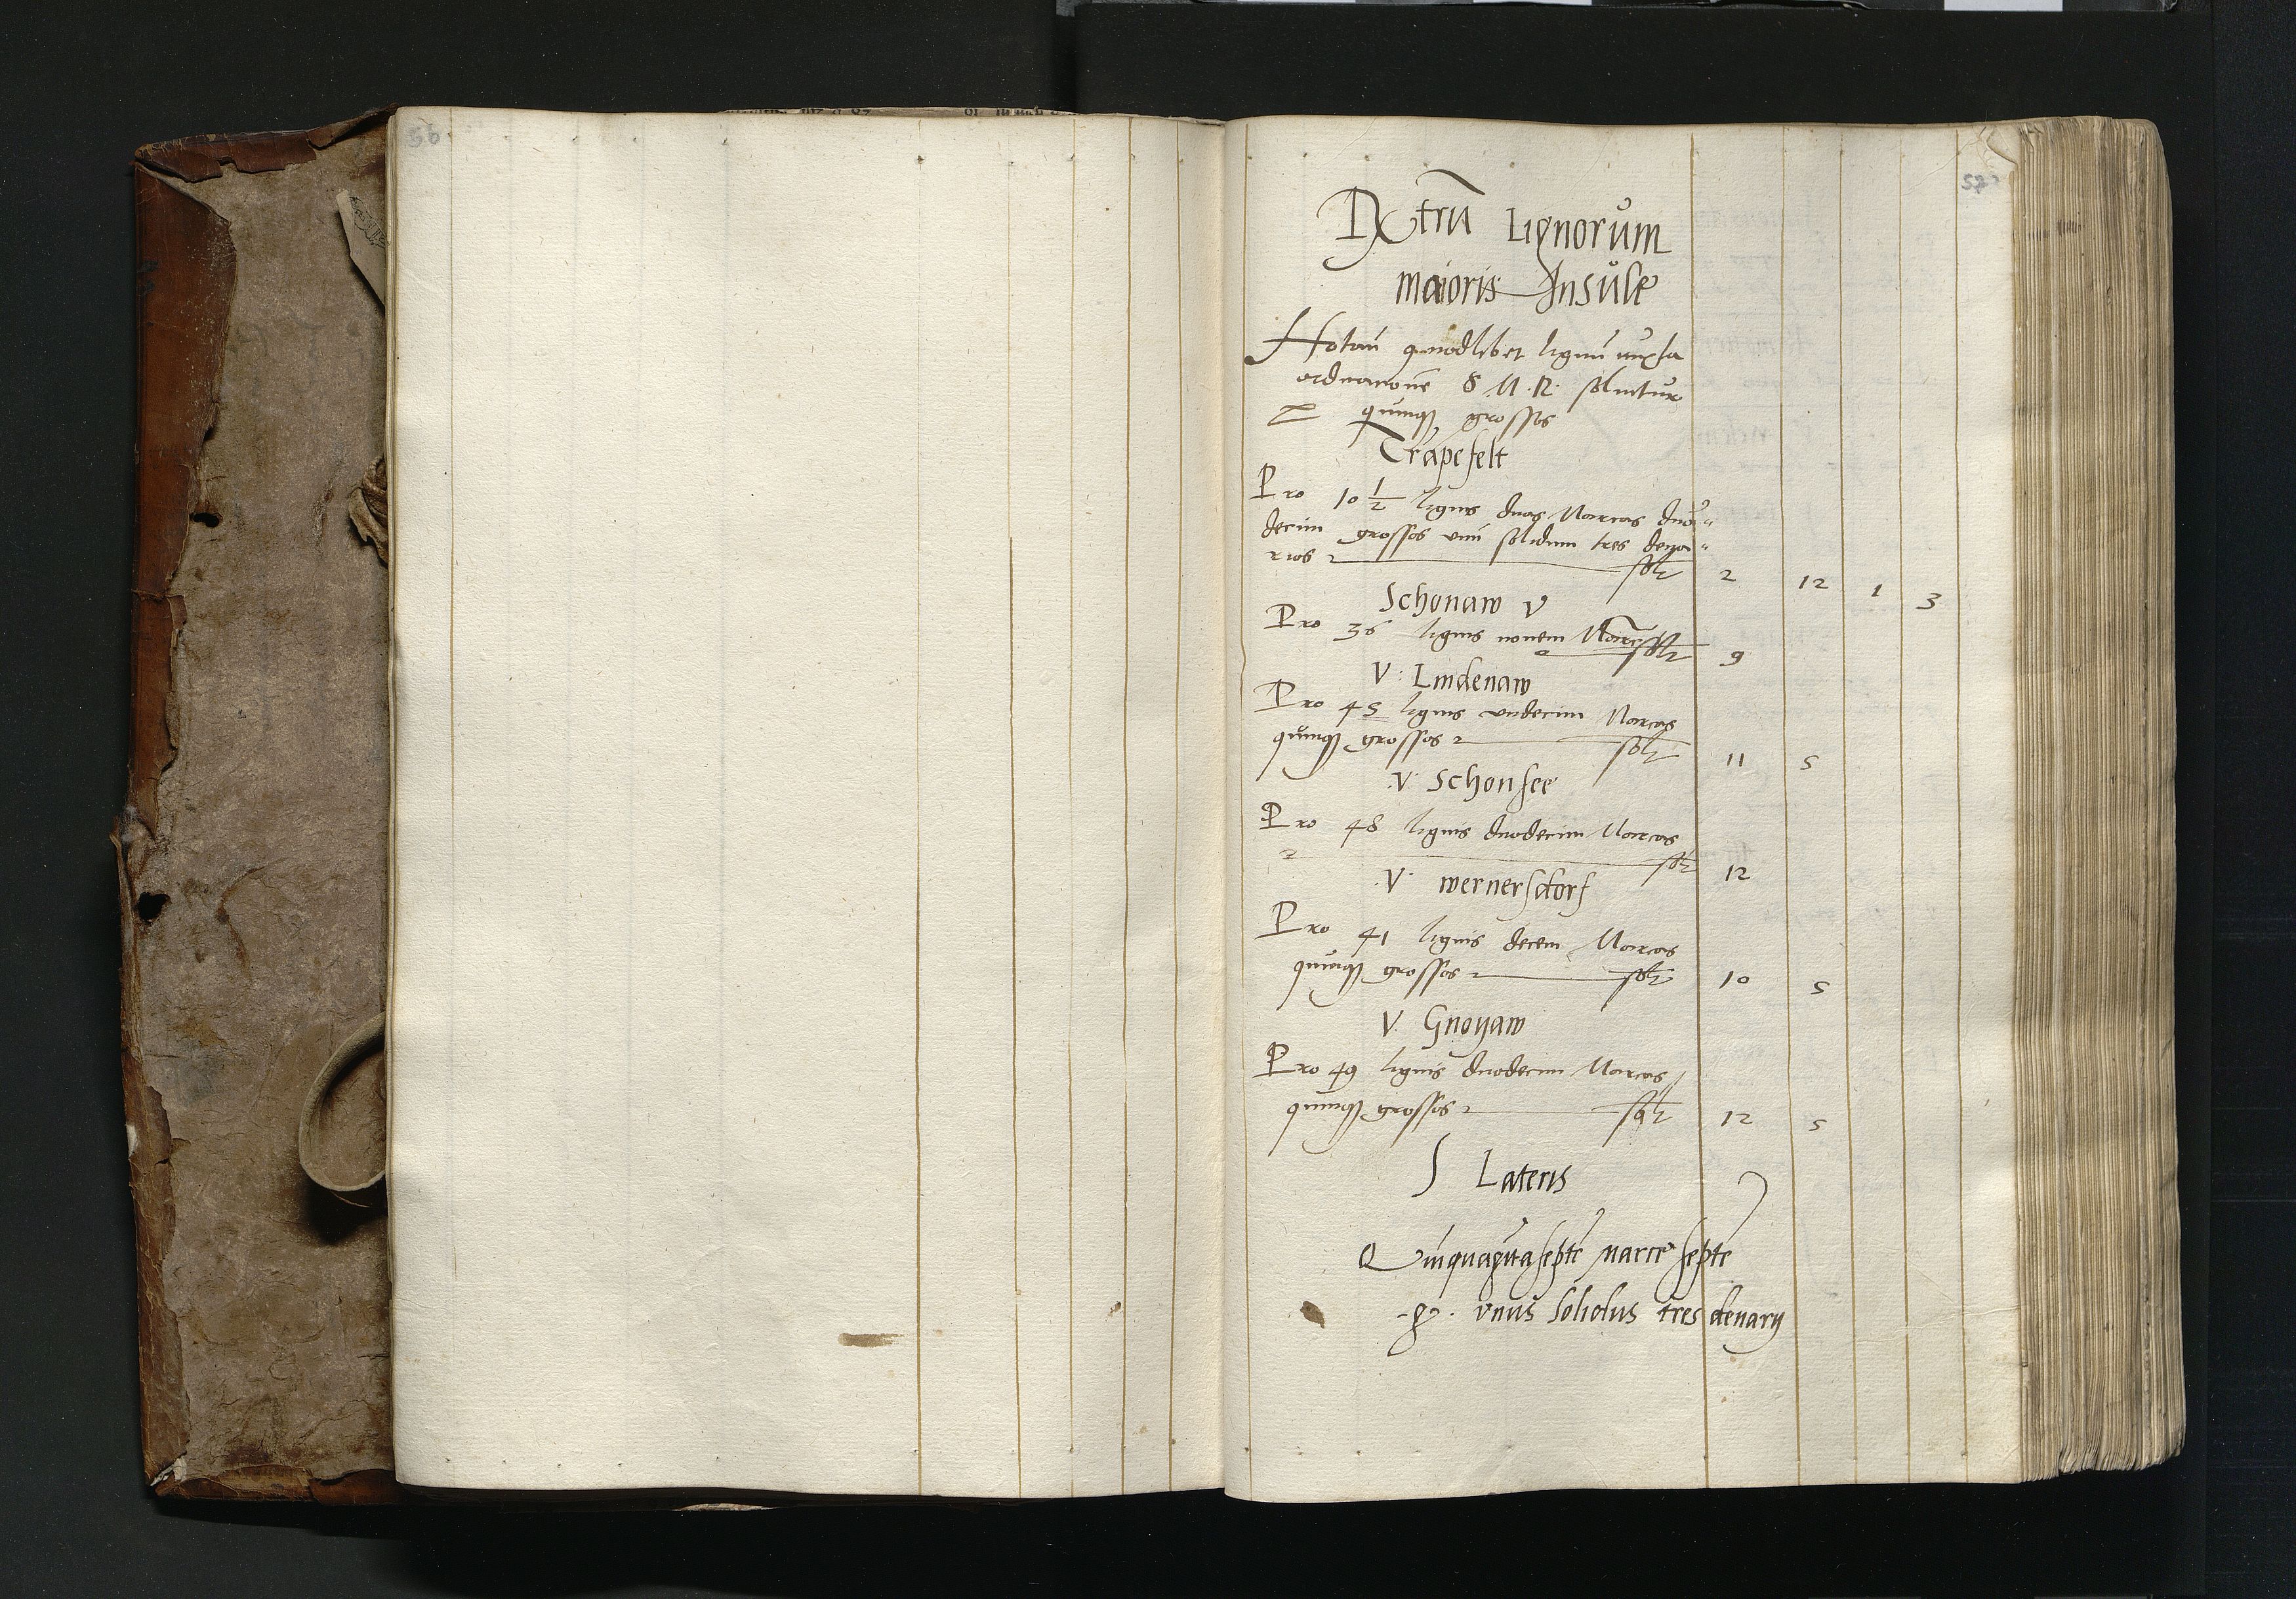 56
57
lignorum
maioris Insule
quodlibet lignu iuxta
S M R soluitur
quinq grossos
Trapefelt
Pro 10 1/2 lignis duas Marcas duo-
decim grossos unu solidum tres dena-
rios solt 2 12 1 3
Schonaw V
Pro 36 lignis nouem Marcas solt 9
V. Lindenaw
Pro 45 lignis undecim Marcas
quinq grossos solt 11 5
V. Schonsee
Pro 48 lignis duodecim Marcas
solt 12
V. wernersdorf
Pro 41 lignis decem Marcas
quinq grossos solt 10 5
V. Gnoyaw
Pro 49 lignis duodecim Marcas
quinq grossos solt 12 5
S Lateris
Quinquagitasepte marce septe
gr. vnus solidus tres denarij